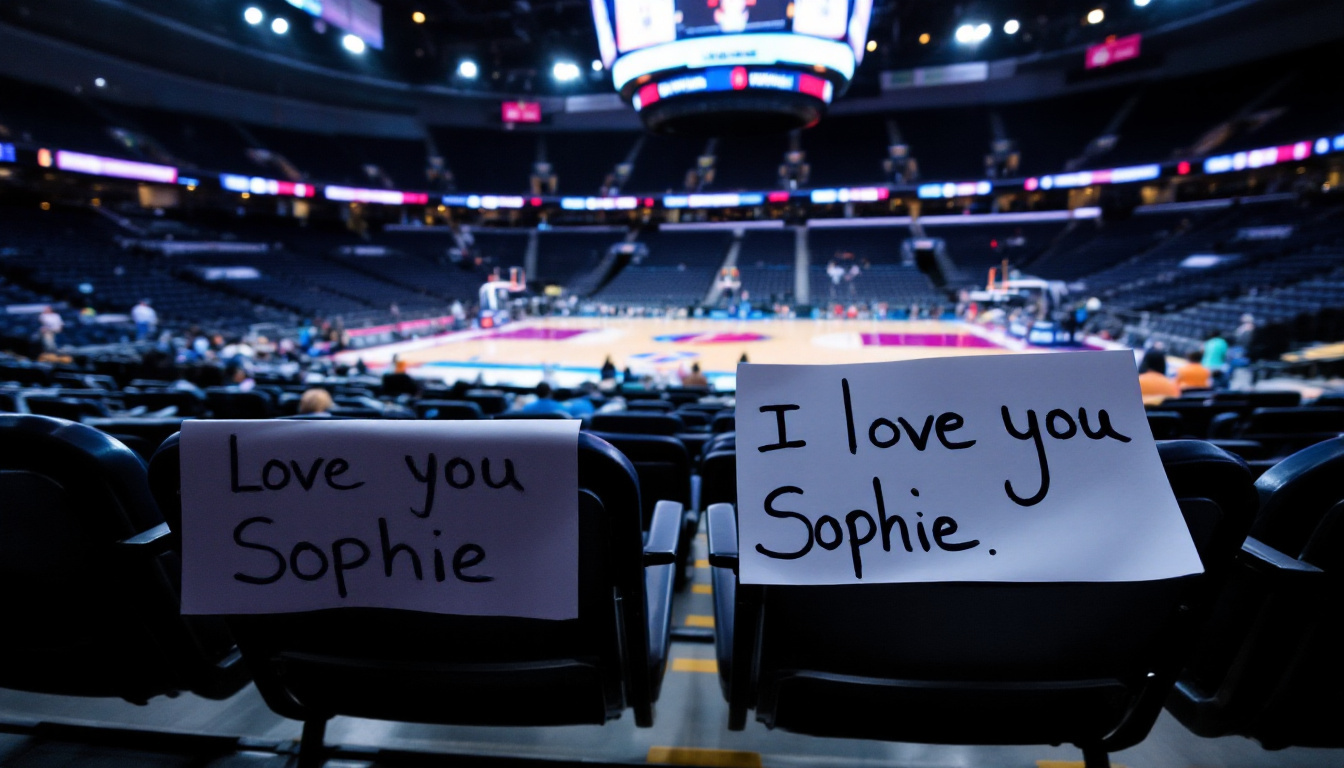 Love you
Sophie
I love you
Sophie.